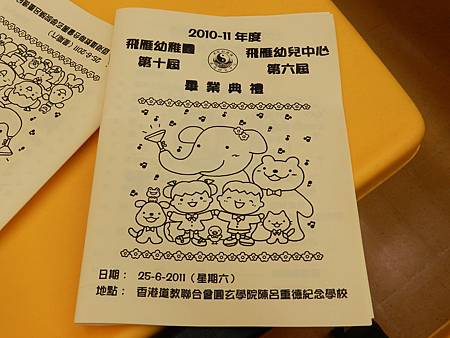 2010-11 年度
飛雁幼稚園 飛雁幼兒中心
第十屆 第六屆
畢業典禮
日期： 25-6-2011（星期六）
地點： 香港道教聯合會圓玄學院陳呂重德紀念學校
25-6-2011（星期六）